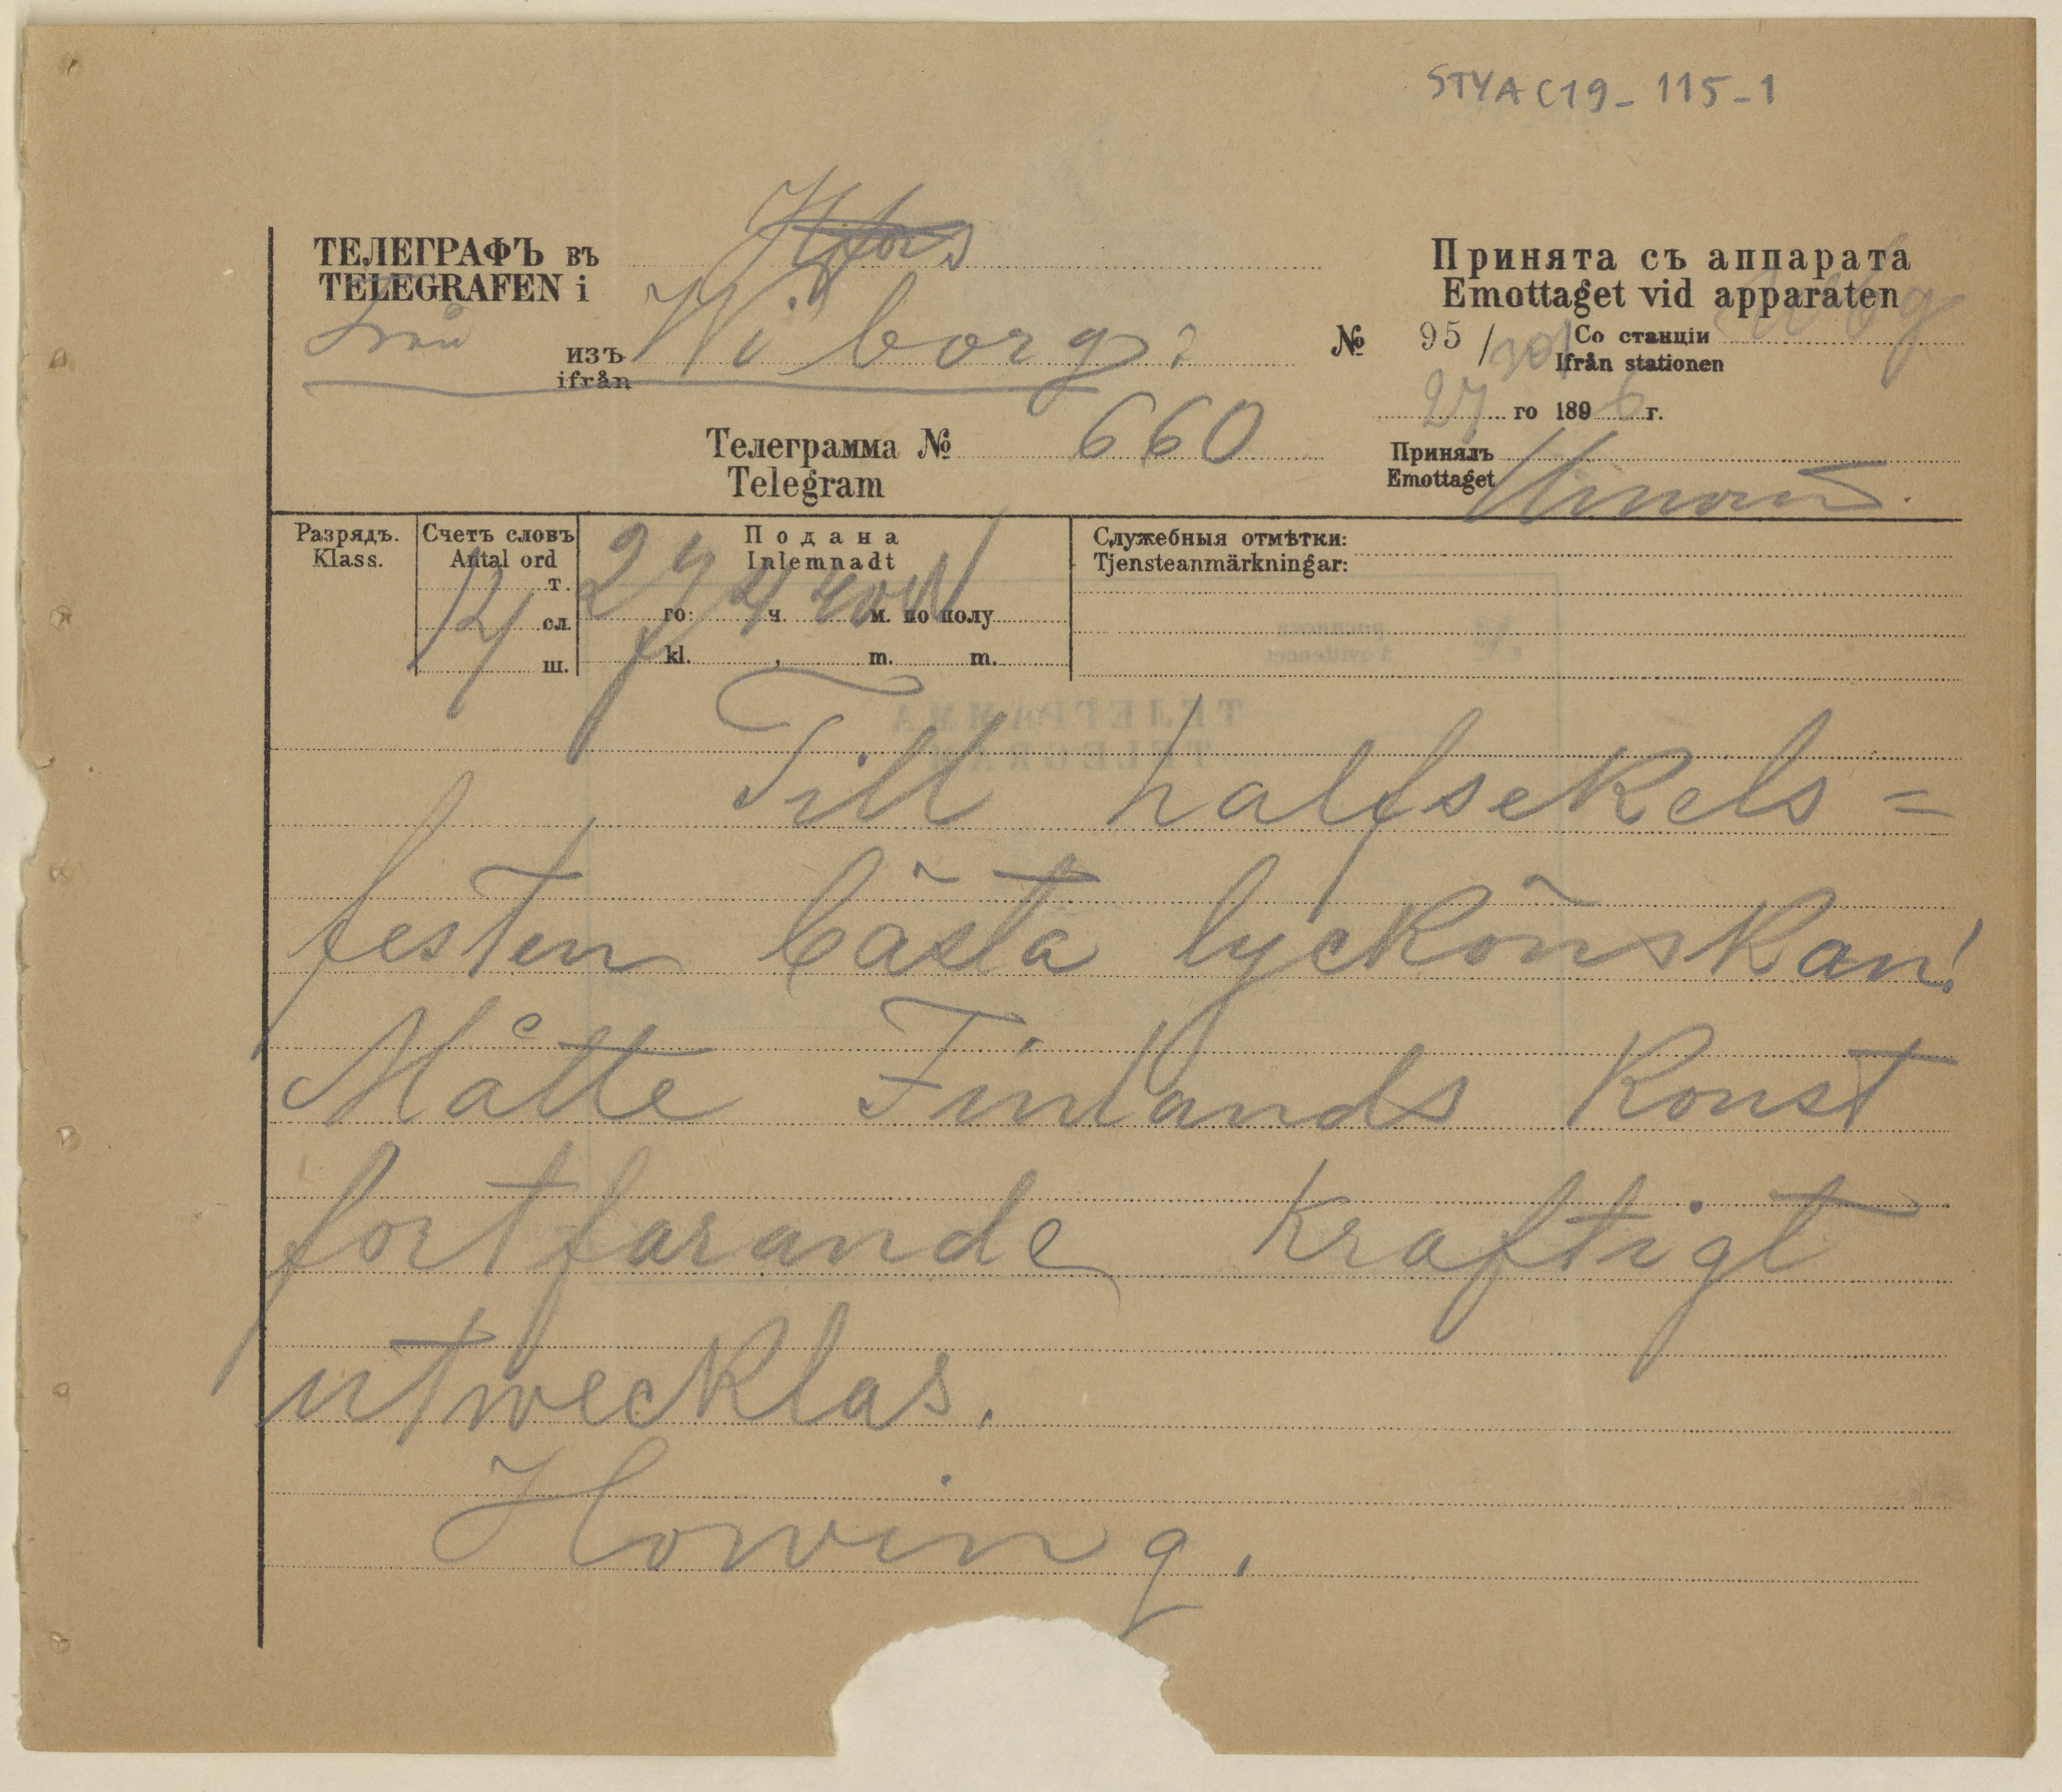 STYA C19_ 115_1
Hfors
ТЕЛЕГРАФЪ въ
TELEGRAFEN i
från Wiborg
изъ
ifrån
Принята съ аппарата
Emottaget vid apparaten
№ 95/301 Со станціи Wbg
Ifrån stationen
27 го 1896 г.
Телеграмма № 660
Telegram
Принялъ
Emottaget
Разрядъ.
Klass.
Счетъ словъ
Antal ord
т.
14 сл.
ш.
Подана
Inlemnadt
27 го ч. м. по полу
kl. , m. m.
Служебныя отмѣтки:
Tjensteanmärkningar:
Till halfsekels=
festen bästa lyckönskan!
Måtte Finlands Konst
fortfarande kraftigt
utwecklas.
Howing.